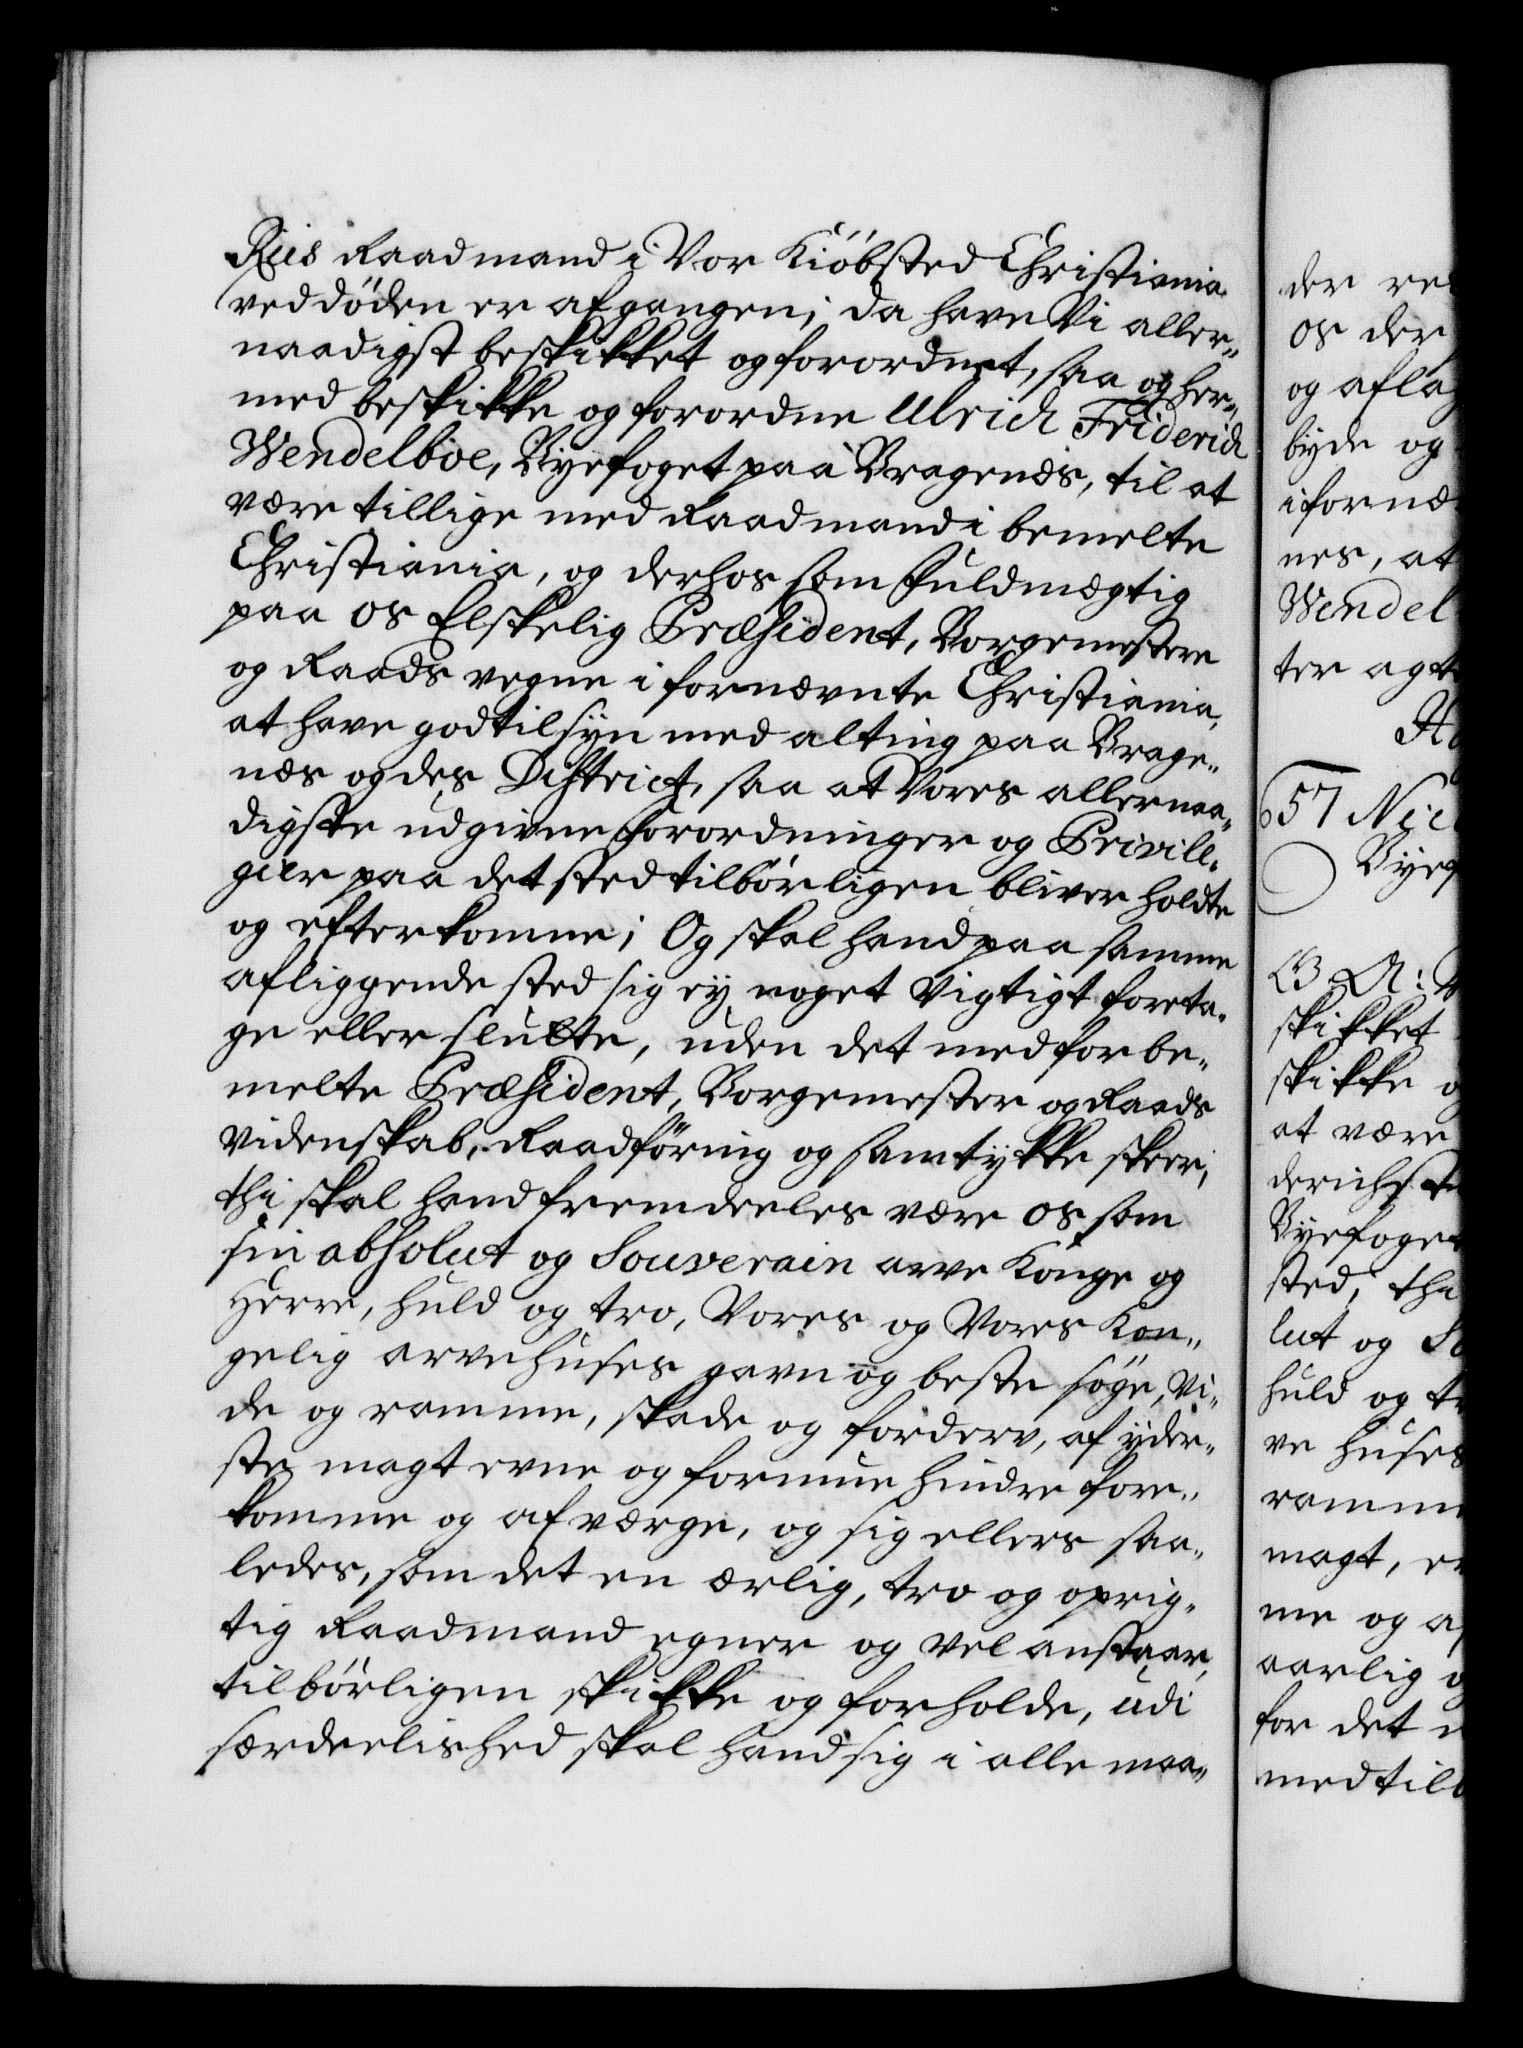 Riis Raadmand i Vor Kiöbsted Christiania
ved döden er afgangen; da have Vi aller„
naadigst beskikket og forordnet, saa og her„
med beskikke og forordne Ulrich Friderich
Wendelboe, Byefoget paa Bragenes, til at
være tillige med Raadmand i bemelte
Christiania, og derhos som Fuldmægtig
paa os Elskelig Præsident, Borgemestere
og Raads vegne i fornævnte Christiania,
at have god tilsÿn med alting paa Brage„
nes og des District, saa at Vores allernaa„
digste udgivne Forordninger og Privile„
gier paa det sted tilbörligen bliver holdte
og efterkomne; Og skal hand paa samme
afliggende sted sig eÿ noget Vigtigt foreta„
ge eller slutte, uden det med forbe„
melte Præsident, Borgemester og Raads
Videnskab, Raadföring og samtÿkke skeer;
thi skal hand fremdeeles være os som
sin absolut og Souverain arve Konge og
Herre, huld og tro, Vores og Vores Kon„
gelig arvehuses gavn og beste söge, Vi„
de og ramme, skade og forderv, af ÿder„
ste magt evne og formue hindre fore„
komme og afværge, og sig ellers saa„
ledes, som det en ærlig, tro og oprig„
tig Raadmand egner og Vel anstaar,
tilbörligen skikke og forholde, udi
særdeelished skal hand sig i alle maa„
der re
os der
og afla
byde og
i fornæ
nes, at
Wendel
ter agt
657 Niel
Byef
G. A: V
skikket
skikke o
at være
derichst
Byefoget
sted, thi
lut og So
huld og tr
ve huses
ramm
magt, e
me og af
aarlig o
for det
med tilb